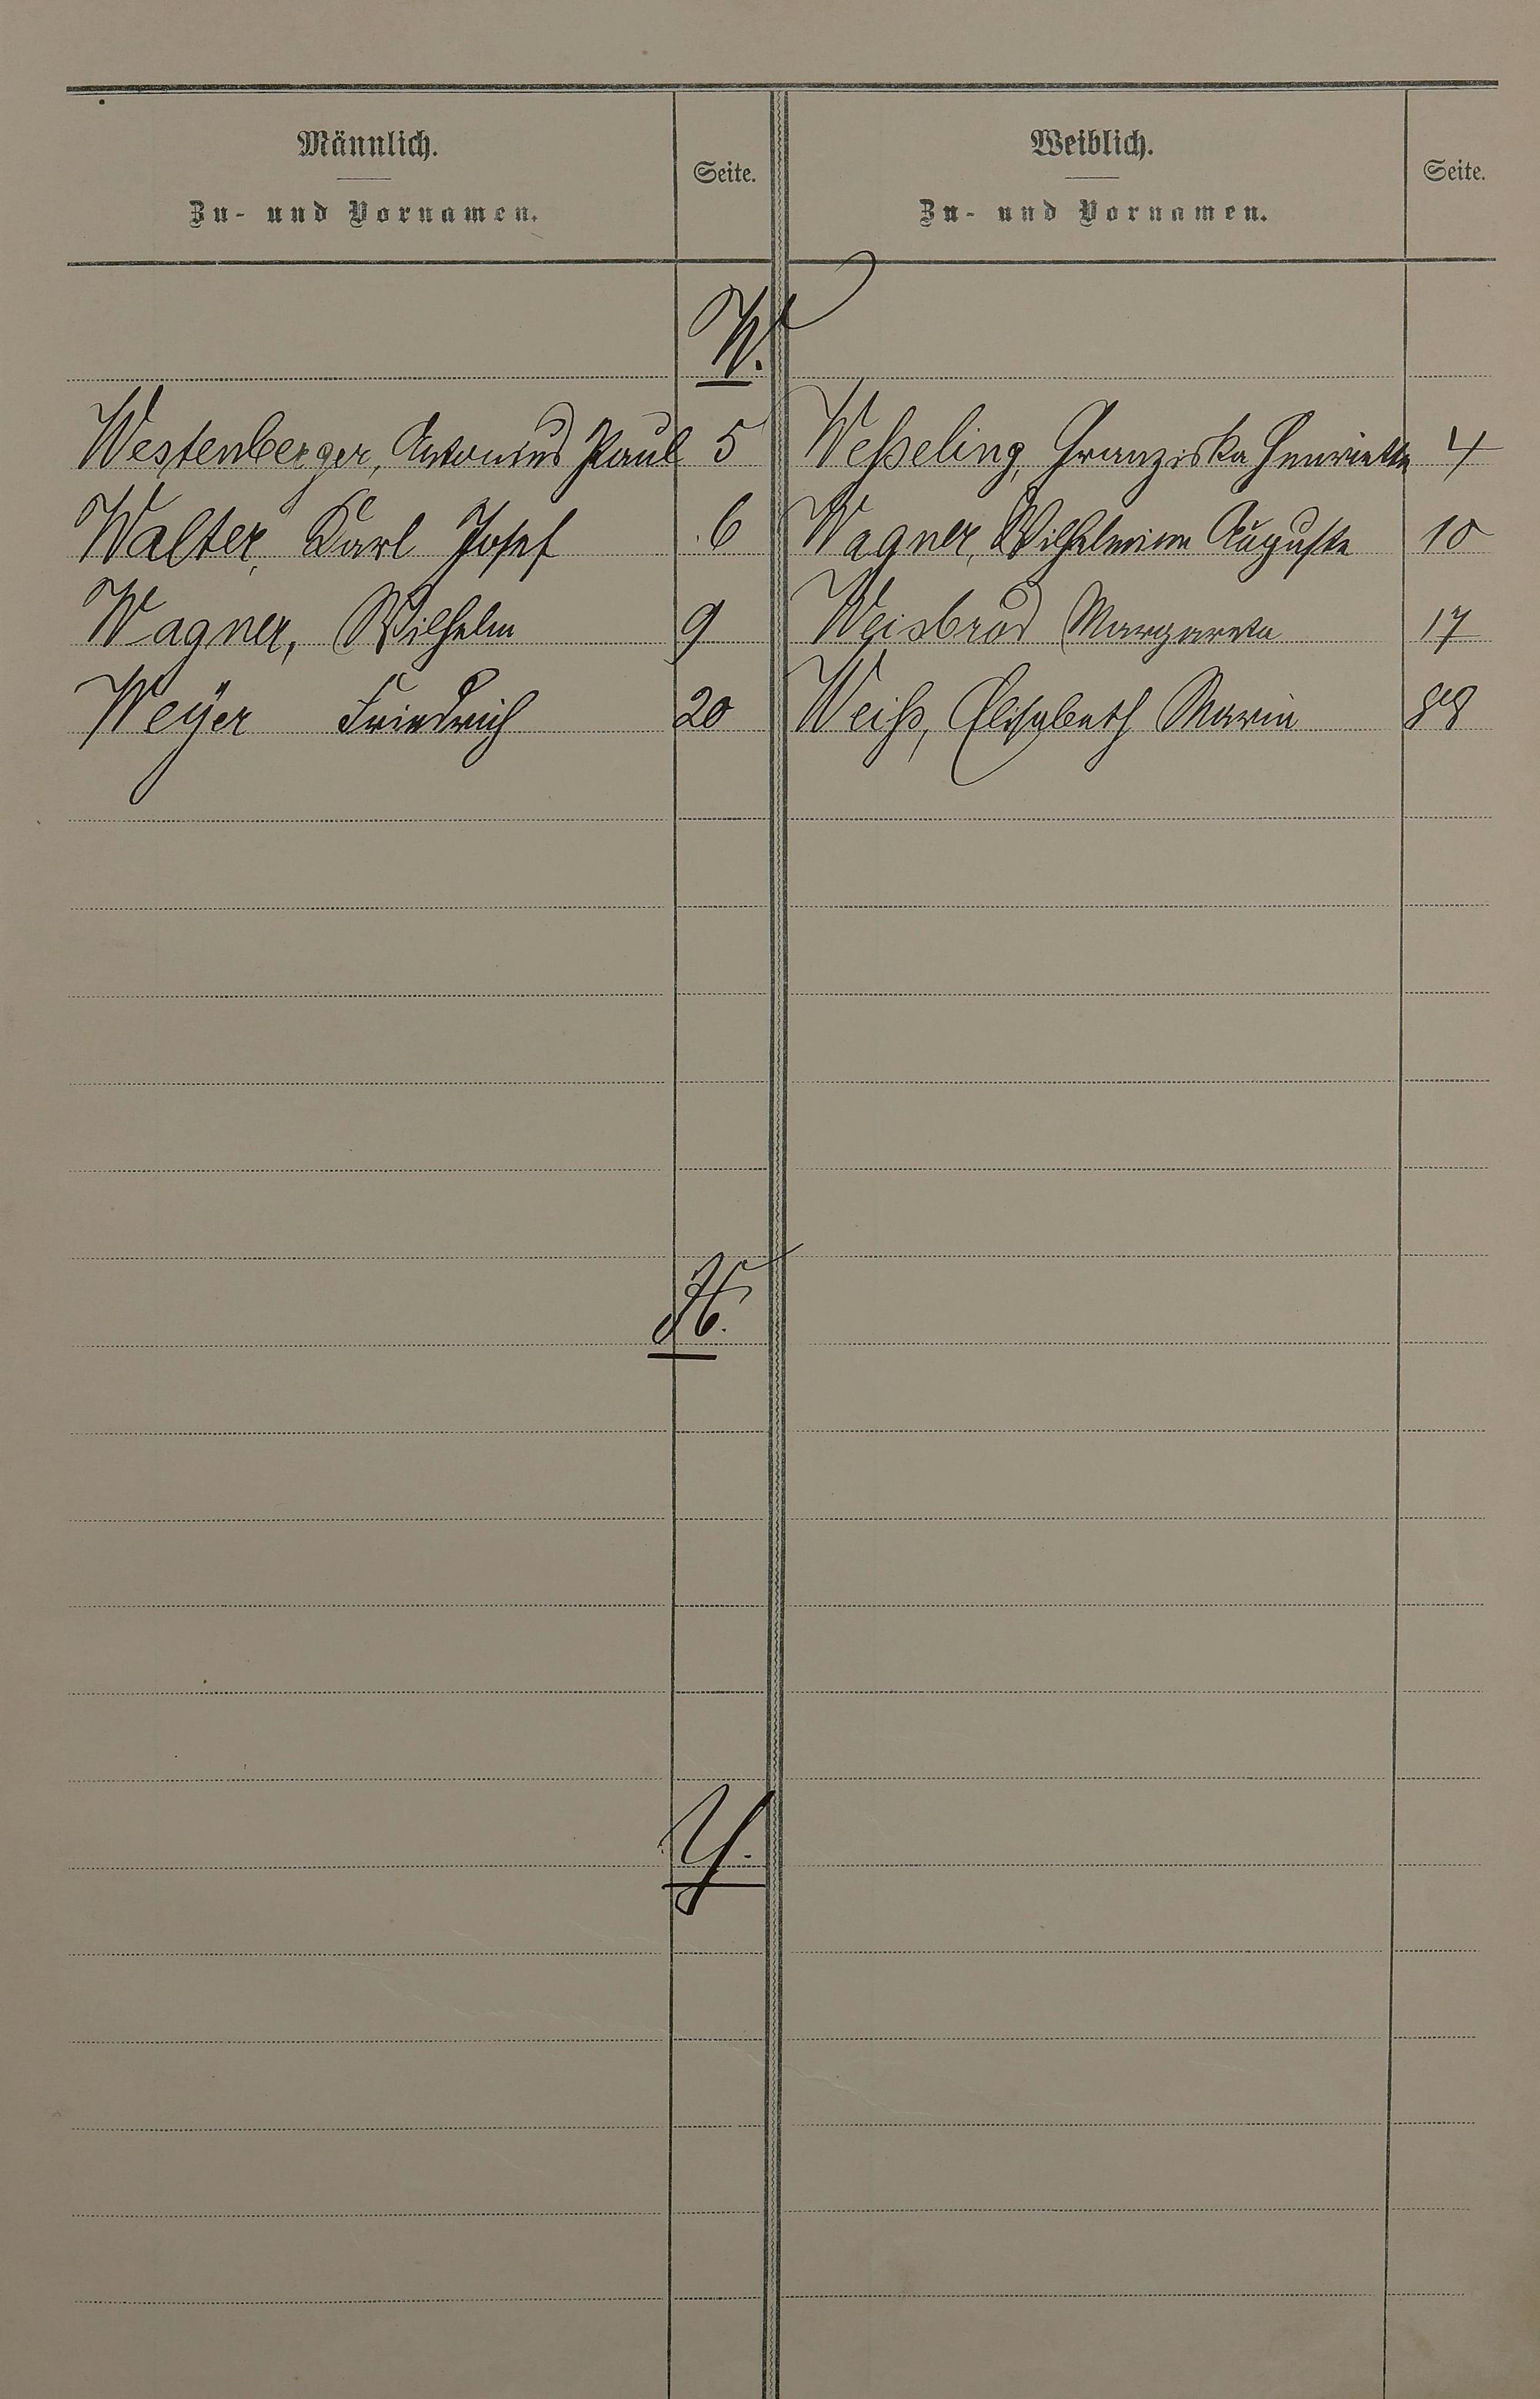 Männlich.
Zu- und Vornamen.
Seite.
Weiblich.
Zu- und Vornamen.
Seite.
W.
Westenberger, Antonius Paul 5 Weßeling, Franziska Henriette 4
Walter, Karl Josef 6 Wagner, Wilhelmine Auguste 10
Wagner, Wilhelm 9 Weisbrod Margareta 17
Weÿer Friedrich 20 Weiß, Elisabeth Maria
X.
Y.